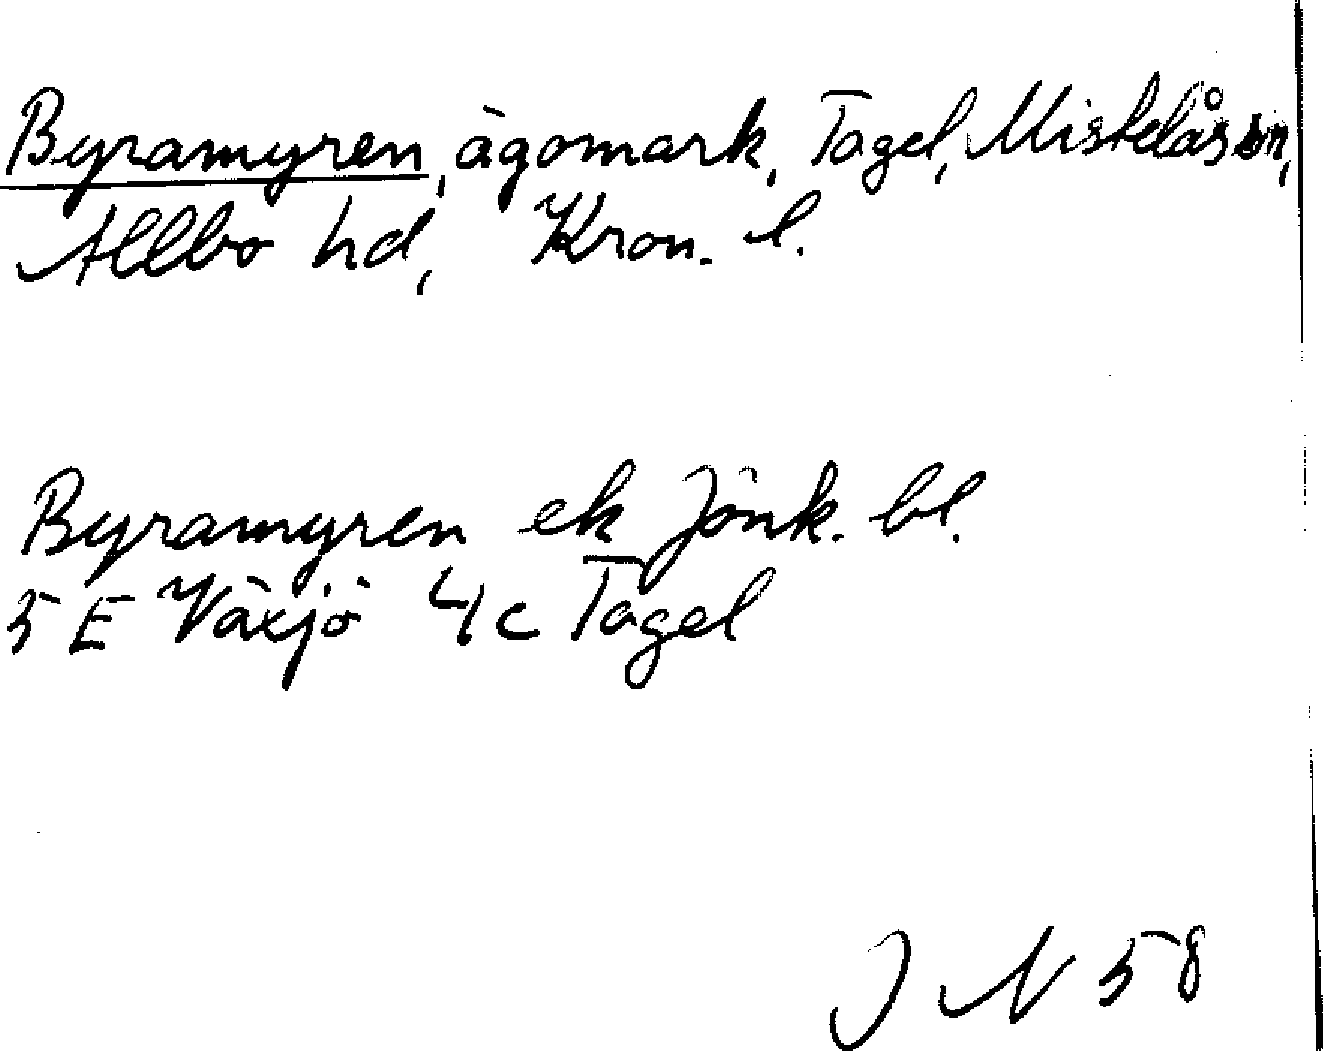 Byramyren, ägomark, Tagel, Mistelås sn,
Allbo hd, Kron. l.
Byramyren ek Jönk. bl.
5 E Växjö 4 c Tagel
J N 58